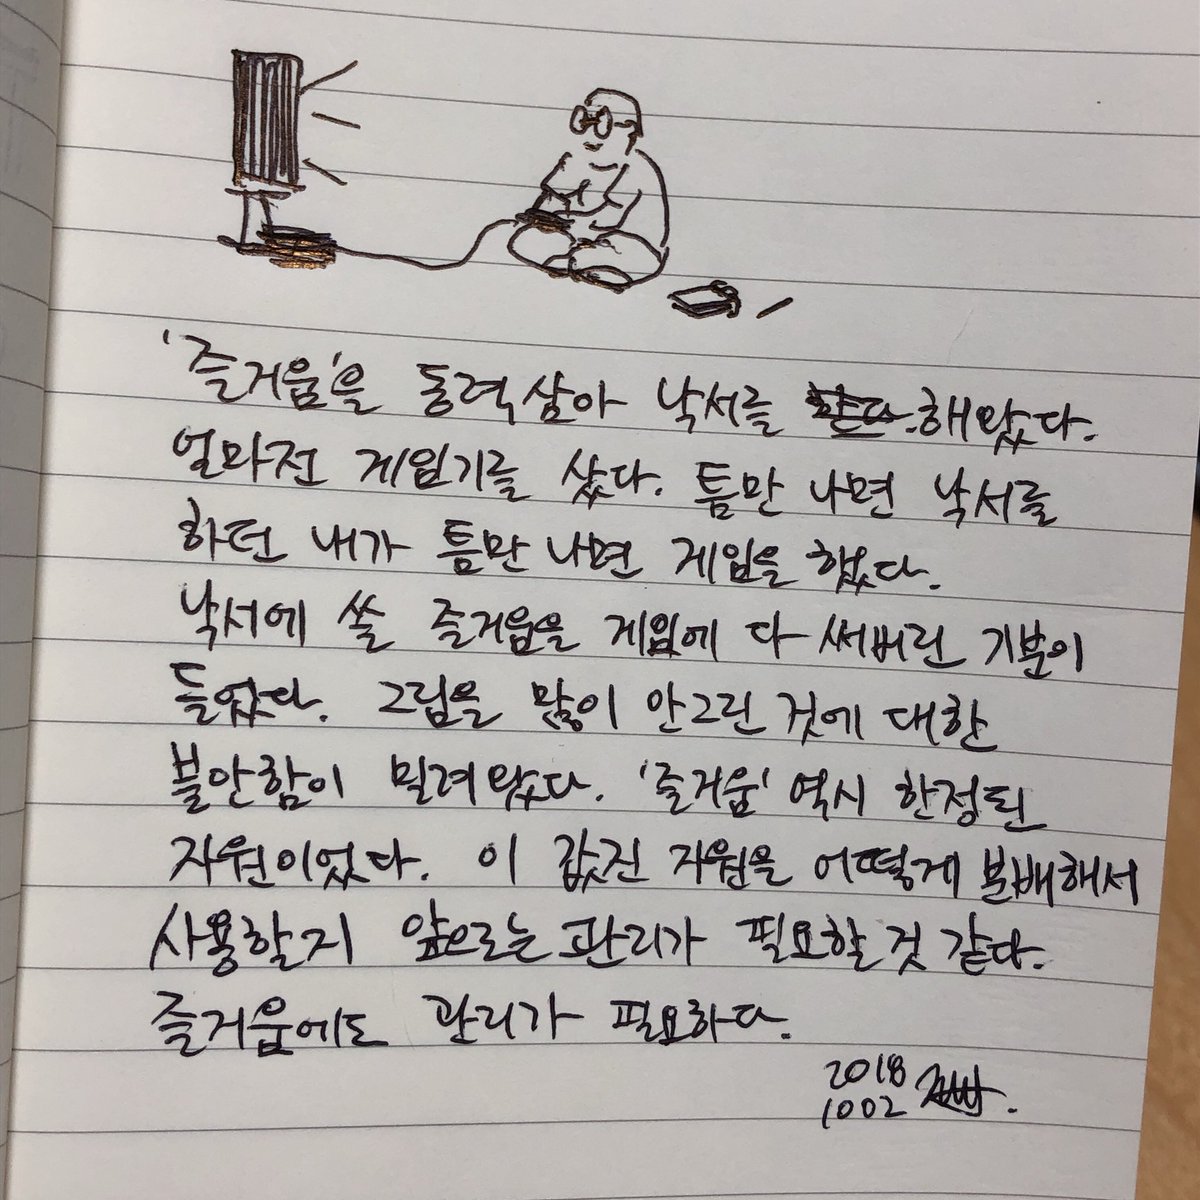 '즐거움'을 동력삼아 낙서를 해왔다.
얼마전 게임기를 샀다. 틈만 나면 낙서를
하던 내가 틈만 나면 게임을 했다.
낙서에 쓸 즐거움을 게임에 다 써버린 기분이
들었다. 그림을 많이 안그린 것에 대한
불안함이 밀려왔다. '즐거움' 역시 한정된
자원이었다. 이 값진 자원을 어떻게 분배해서
사용할지 앞으로는 관리가 필요할 것 같다.
즐거움에도 관리가 필요하다.
2018
1002